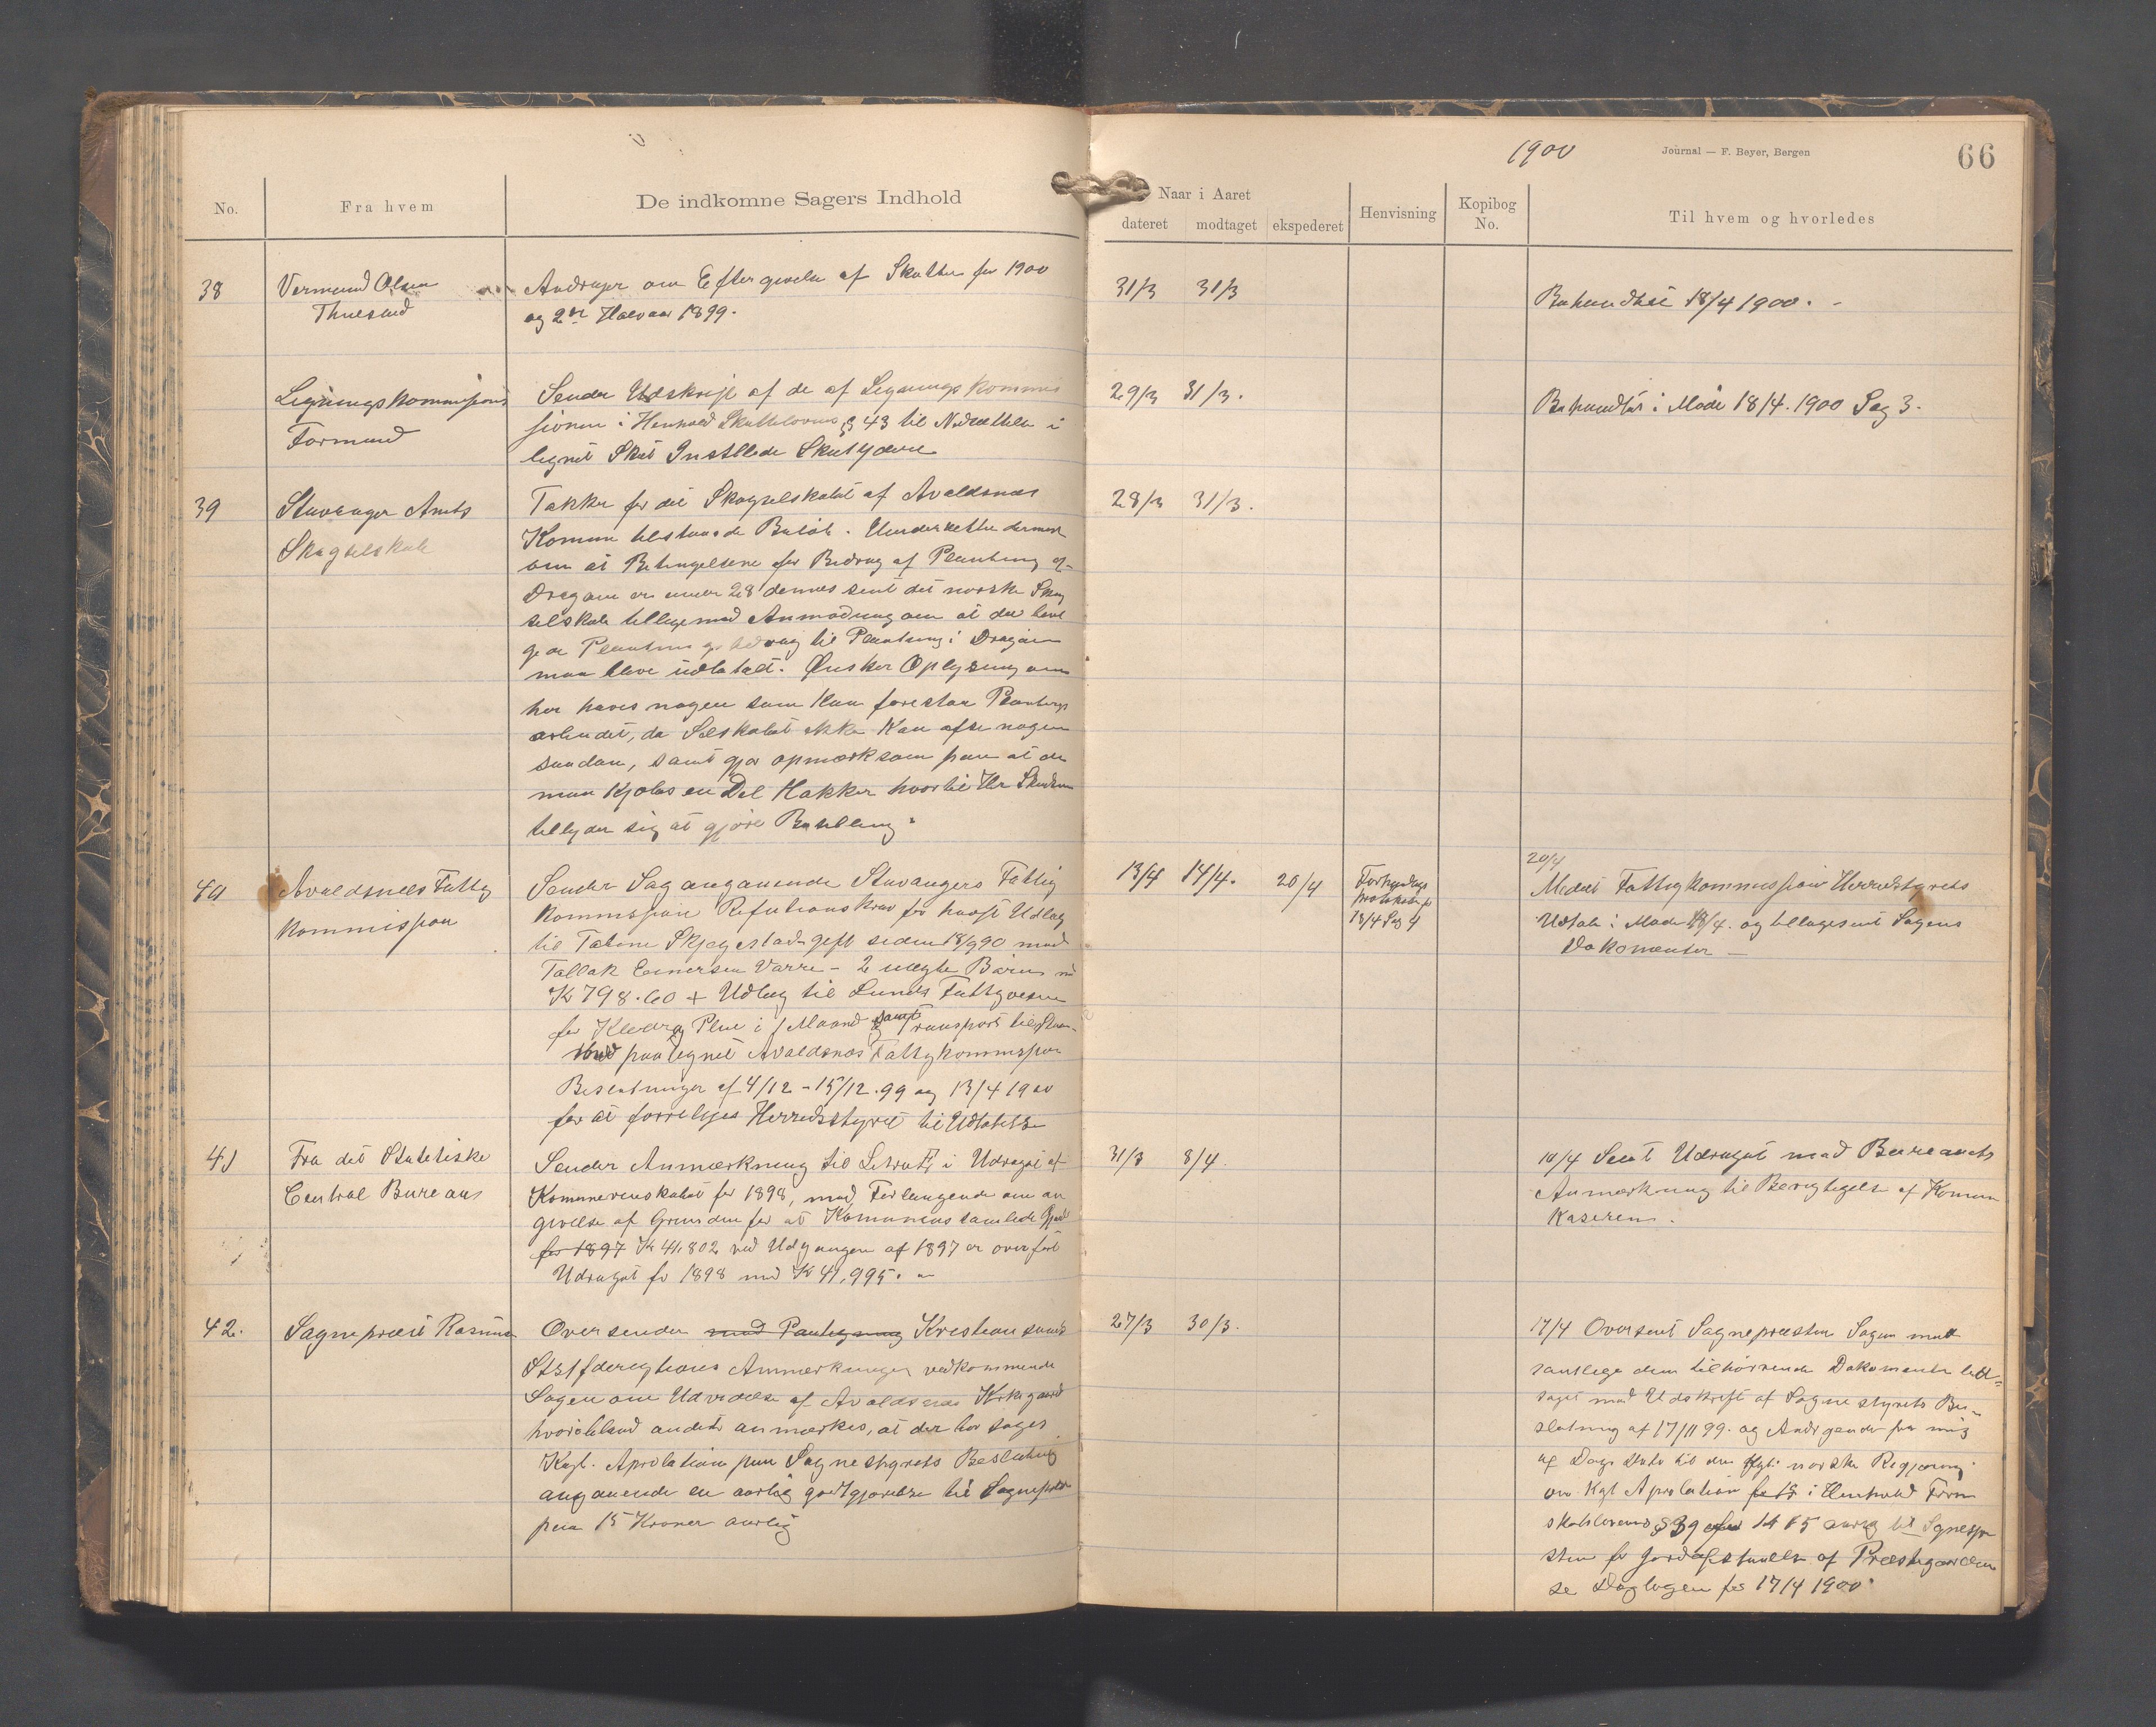 1900
Journal — F. Beyer, Bergen
66
No.
Fra hvem
De indkomne Sagers Indhold
Naar i Aaret
dateret
modtaget
ekspederet
Henvisning
Kopibog
No.
Til hvem og hvorledes
38
Vermund Olsen
Andrager om Eftergivelse af Skatten for 1900
og 2det Halvaar 1899.
31/3
31/3
Behandlet 18/4 1900. -
Ligningskommissions
Formand
Sender Udskrift af de af Ligningskommis
sionen i Henhold Skattelovens § 43 til Nedsættelse i
lignet Skat Instillede Skatydere
29/3
31/3.
Behandlet i Møde 18/4. 1900 Sag 3.
39
Stavanger Amts
Skogselskab
Takker for det Skogselskabet af Avaldsnes
Komune tilstaaede Beløb. Underretter dernæst
om at Betingelserne for Bidrag af Plantning af
Dragøen er under 28 dennes sent det norske Skog
selskab tillige med Anmodning om at det
Plantnings bidrag til Plantning i Dragøen
maa blive udbetalt. Ønsker Oplysning om
her haves nogen som kan forestaa Plantnings
arbeidet, da Selskabet ikke kan afse nogen
saadan, samt gjør opmærksom paa at der
maa kjøbes en Del Hakker hvortil Hr
tilbyder sig at gjøre Bestilling.
28/3
31/3.
40
Avaldsnes Fattig
kommission
Sender Sag angaaende Stavangers Fattig
kommission Refutionskrav for havft Udlæg
til Tabine Skjegestad gift siden 18/9 90 med
Tallak Einersen Varre - 2 uægte Børn
K 798.60 + Udlæg til Lunds Fattigvæsen
for Klædrag Pleie i 1 Maaned samt Transport til
paategnet Avaldsnes Fattigkommission
Beslutninger af 4/12 - 15/12.99 og 13/4 1900
for at forrelæges Herredsstyret til Udtalelse
13/4
14/4.
20/4
Forhandlings
protokol for
18/4 Sag 4
20/4
Medelt Fattigkommission Herredstyrets
Udtale i Møde 18/4. og tillagesent Sagens
Dokomenter —
41
Fra det Statistiske
Central Bureaus
Sender Anmærkning til Litra E, i Udraget af
Komuneregnskabet for 1898, med Forlangende om an
givelse af Grunden for at Komunens samlede Gjæld
for 1897 K 41.802 ved Udgangen af 1897 er overført
Udraget for 1898 med K 41,995. -
31/3
8/4
10/4 Sent Udraget med Bureauets
Anmærkning til Berigtigelse af Komune
Kasseren.
42.
Sognepræst Rasmus
Oversender med Paategning Kristiansands
Stiftsderigtions Anmærkninger vedkommende
Sagen om Udvidelse af Avaldsnes Kirkegaard
hvoriblandt andet anmærkes, at der bør søges
Kgl. Aprobation paa Sognestyrets Beslutning
angaaende en aarlig godtgjørelse til Sognepræsten
paa 15 Kroner aarlig
27/3
30/3.
17/4 Oversent Sognepræsten Sagen med
samtlige dem tilhørende Dokomenter led=
saget med Udskrift af Sognestyrets Be-
slutning af 17/11 99. og Andragende fra mig
af Dags Dato til den Kgl. norske Regjering
om Kgl Aprobation i Henhold Form
skabslovens § 39 15 aarlig til Sognepræ
sten for Jordafstaaelse af Præstegaarden
se Dagbogen for 17/4 1900.